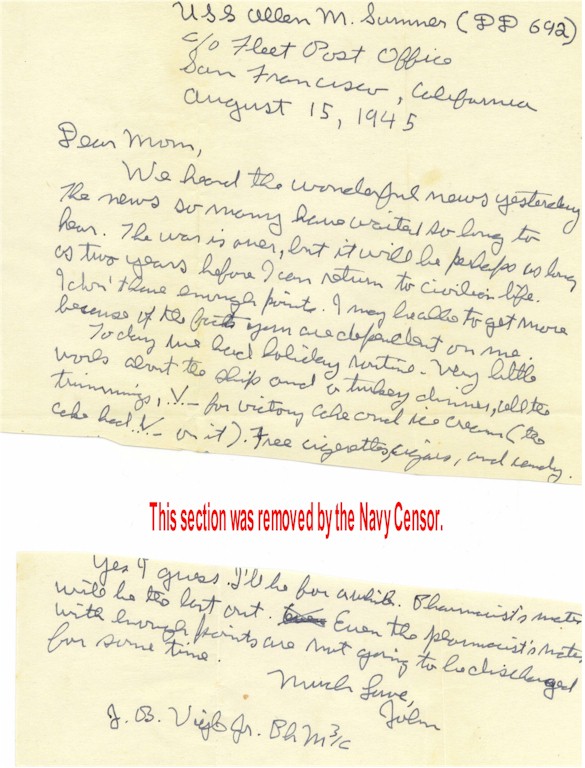 USS Allen M. Sumner (DD 692)
c/o Fleet Post Office
San Francisco, California
August 15, 1945
Dear Mom,
We heard the wonderful news yesterday
The news so many have waited so long to
hear. The war is over, but it will be perhaps as long
as two years before I can return to civilian life.
I don't have enough points. I may be able to get more
because of the fact you are dependent on me.
Today we had holiday routine - Very little
work about the ship and a turkey dinner, all the
trimmings, ...V- for victory cake and ice cream (the
cake had ...V- on it). Free cigarettes, cigars, and candy.
This section was removed by the Navy Censor.
Yes I guess I'll be for awhile. Pharmacist's mates
will be the last out. Even the pharmacist's mates
with enough points are not going to be discharged
for some time.
Much Love,
John
J. B. Jr. PhM3/c